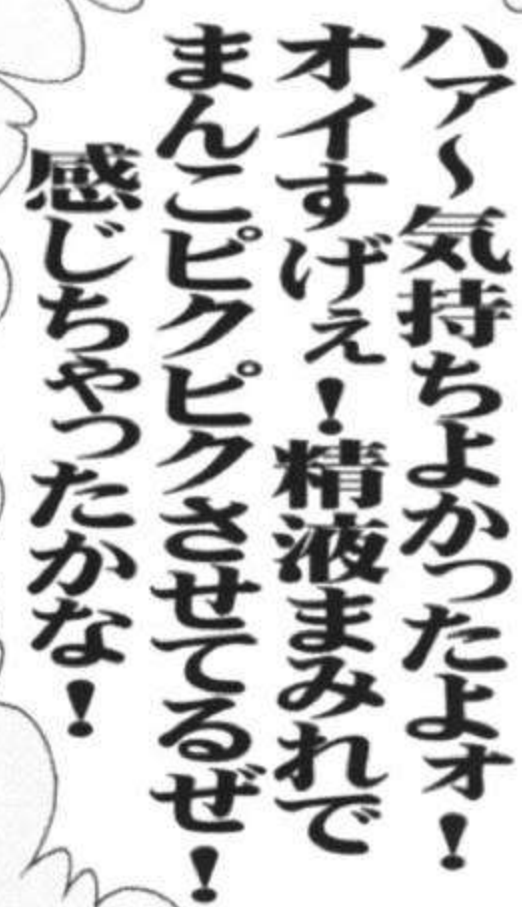 ハァ～気持ちよかったよォ！
オイすげぇ！精液まみれで
まんこピクピクさせてるぜ！
感じちゃったかな！